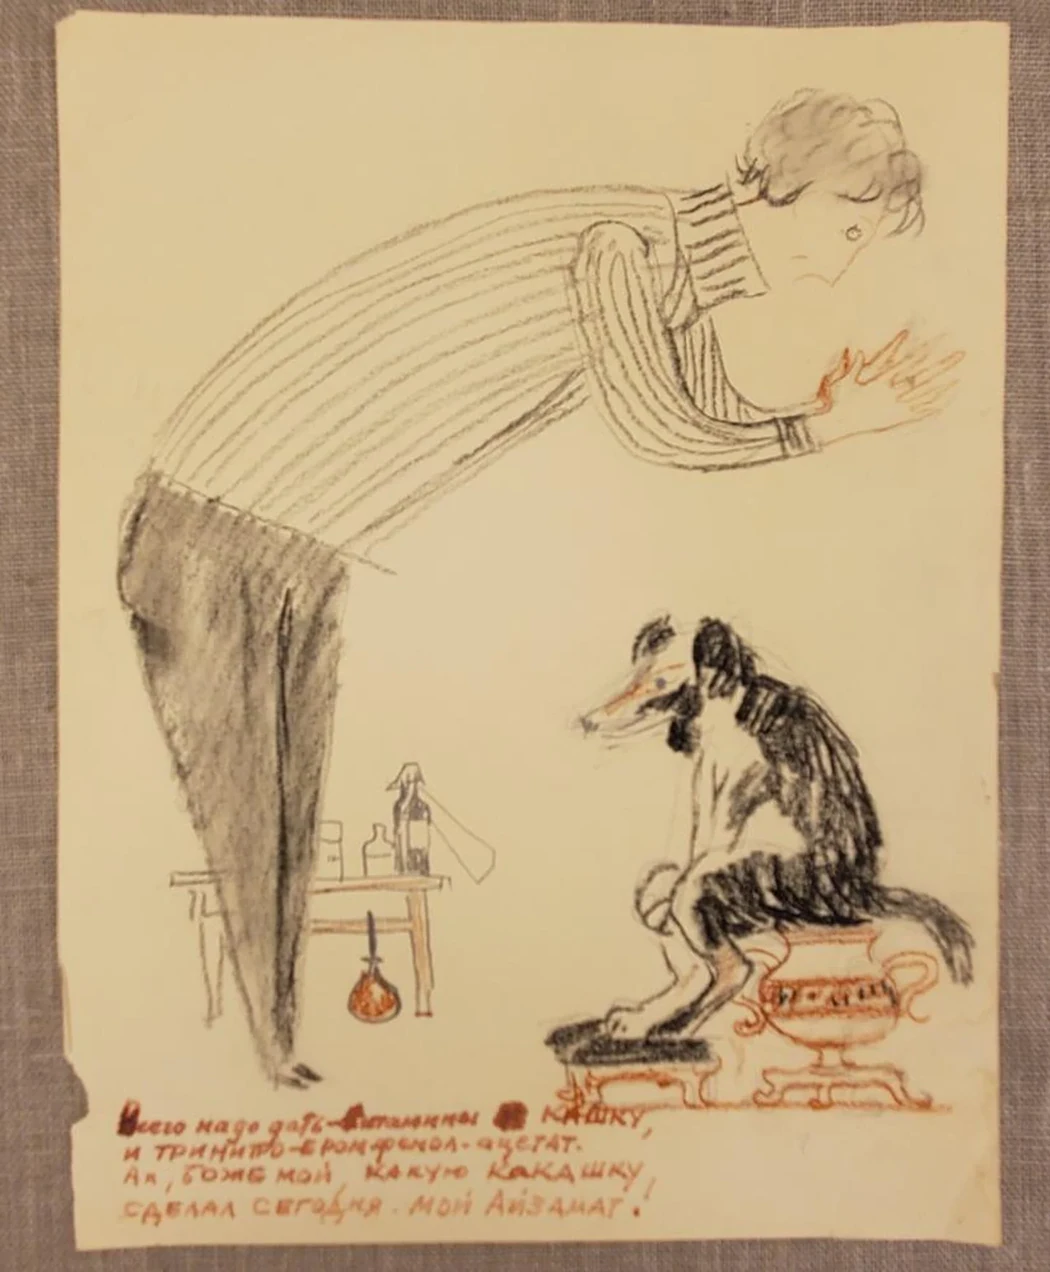 Всего надо дать - витамины кашку,
и тринитро-бромфенол-ацетат.
Ах, боже мой, какую какашку,
сделал сегодня мой Айзамат!